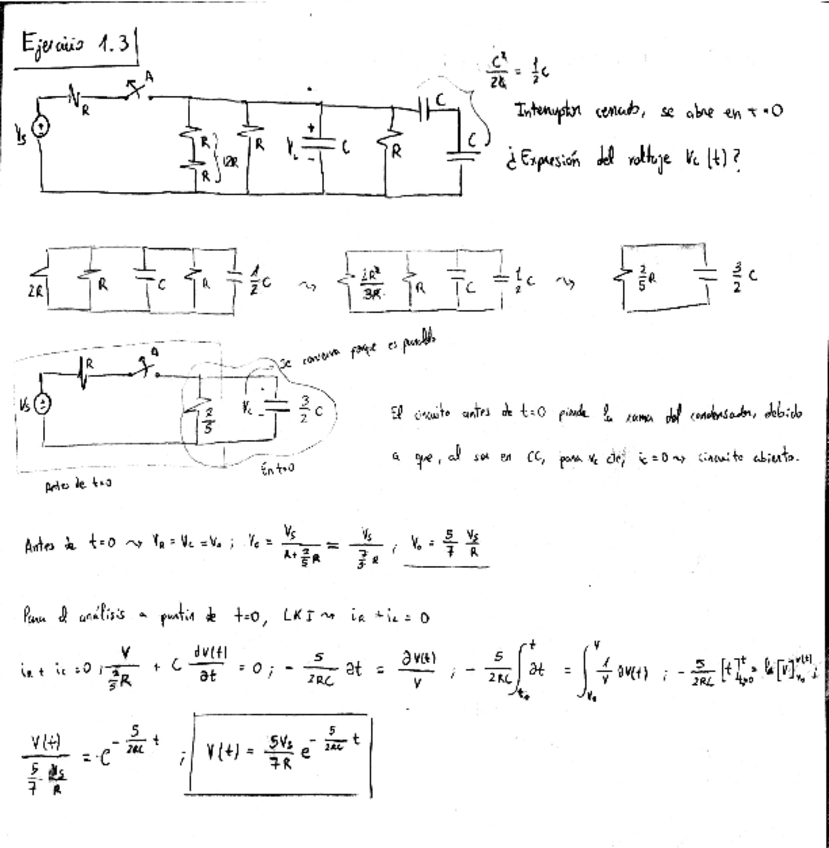 Ejercicio 1.3
A
R
Vs
R
R
2R
R
+
Vc
-
C
R
C
C
C²/2C = 1/2 C
Interruptor cerrado, se abre en t=0
¿Expresión del voltaje Vc(t)?
2R R C R 1/2 C ⇝ 2R²/3R R C 1/2 C ⇝ 2/5 R 3/2 C
Se conserva porque es paralelo
R A
Vs
2/5
Vc
-
3/2 C
En t=0
Antes de t=0
El circuito antes de t=0 pierde la rama del condensador, debido
a que, al ser en CC, para Vc cte, ic=0 ⇝ circuito abierto.
Antes de t=0 ⇝ VR = VC = V0 ; Vc = Vs/(R+2/5 R) = Vs/(7/5 R) ; V0 = 5/7 Vs/R
Para el análisis a partir de t=0, LKI ⇝ iR + ic = 0
iR + ic = 0 ; V/(2/5 R) + C dV(t)/∂t = 0 ; - 5/2RC ∂t = ∂V(t)/V ; - 5/2RC ∫_{t0}^{t} ∂t = ∫_{V0}^{V} 1/V ∂V(t) ; - 5/2RC [t]_{t=0}^{t} = ln [V]_{V0}^{V(t)} ;
V(t)/(5/7 · Vs/R) = e^{- 5/2RC t} ; V(t) = 5Vs/7R e^{- 5/2RC t}